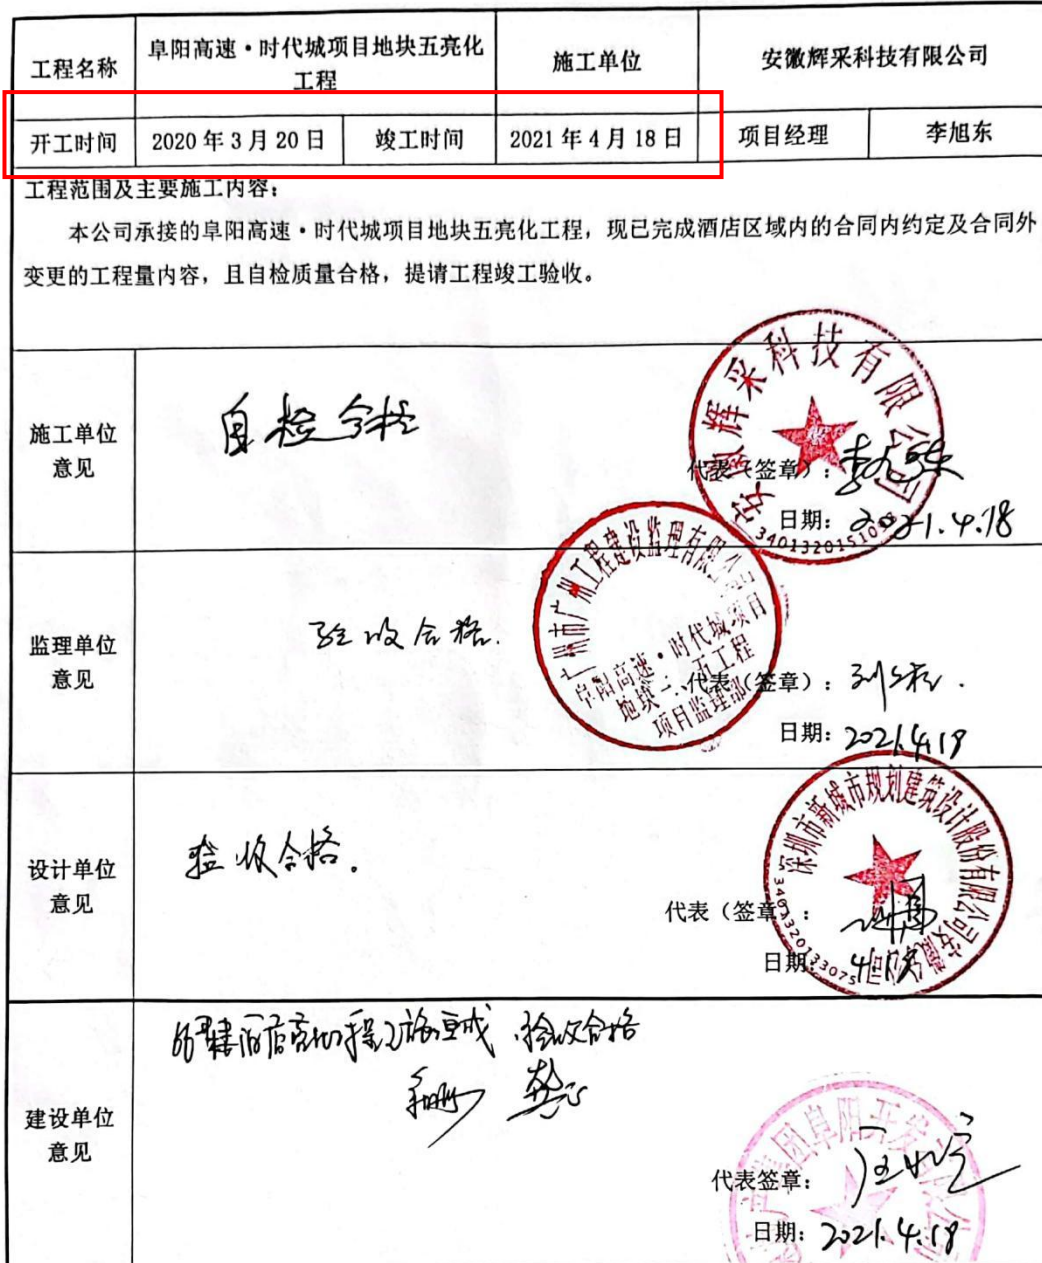 工程名称
阜阳高速·时代城项目地块五亮化
工程
施工单位
安徽辉采科技有限公司
开工时间
2020年3月20日
竣工时间
2021年4月18日
项目经理
李旭东
工程范围及主要施工内容：
本公司承接的阜阳高速·时代城项目地块五亮化工程，现已完成酒店区域内的合同内约定及合同外
变更的工程量内容，且自检质量合格，提请工程竣工验收。
施工单位
意见
自检合格
安徽辉采科技有限公司
代表（签章）：
日期：2021.4.18
监理单位
意见
验收合格.
广州市广州工程建设监理有限公司
阜阳高速·时代城项目
项目监理部
代表（签章）：
日期：2021.4.18
设计单位
意见
验收合格.
深圳市新城市规划建筑设计股份有限公司安徽
代表（签章）：
日期：4.18
建设单位
意见
验收合格
代表签章：
日期：2021.4.18